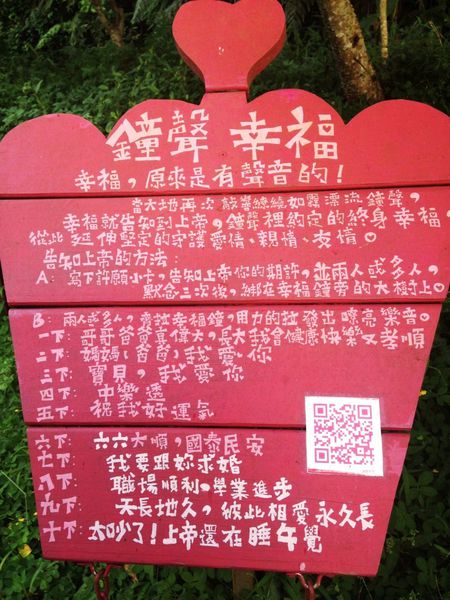 鐘聲 幸福
幸福，原來是有聲音的！
當大地再次敲響繚繞如霧漂流鐘聲，
幸福就告知到上帝，鐘聲裡約定的終身幸福，
從此延伸堅定的守護愛情、親情、友情♡
告知上帝的方法：
A：寫下許願小卡，告知上帝你的期許，並兩人或多人，
默念三次後，綁在幸福鐘旁的大樹上♡
B：兩人或多人，牽拉幸福鐘，用力的拉 發出嘹亮樂音。
一下：哥哥爸爸真偉大，長大我會健康快樂又孝順
二下：媽媽、爸爸，我愛你
三下：寶貝，我愛祢
四下：中樂透
五下：祝我好運氣
六下：六六大順，國泰民安
七下：我要跟妳求婚
八下：職場順利，學業進步
九下：天長地久，彼此相愛永久長
十下：太吵了！上帝還在睡午覺